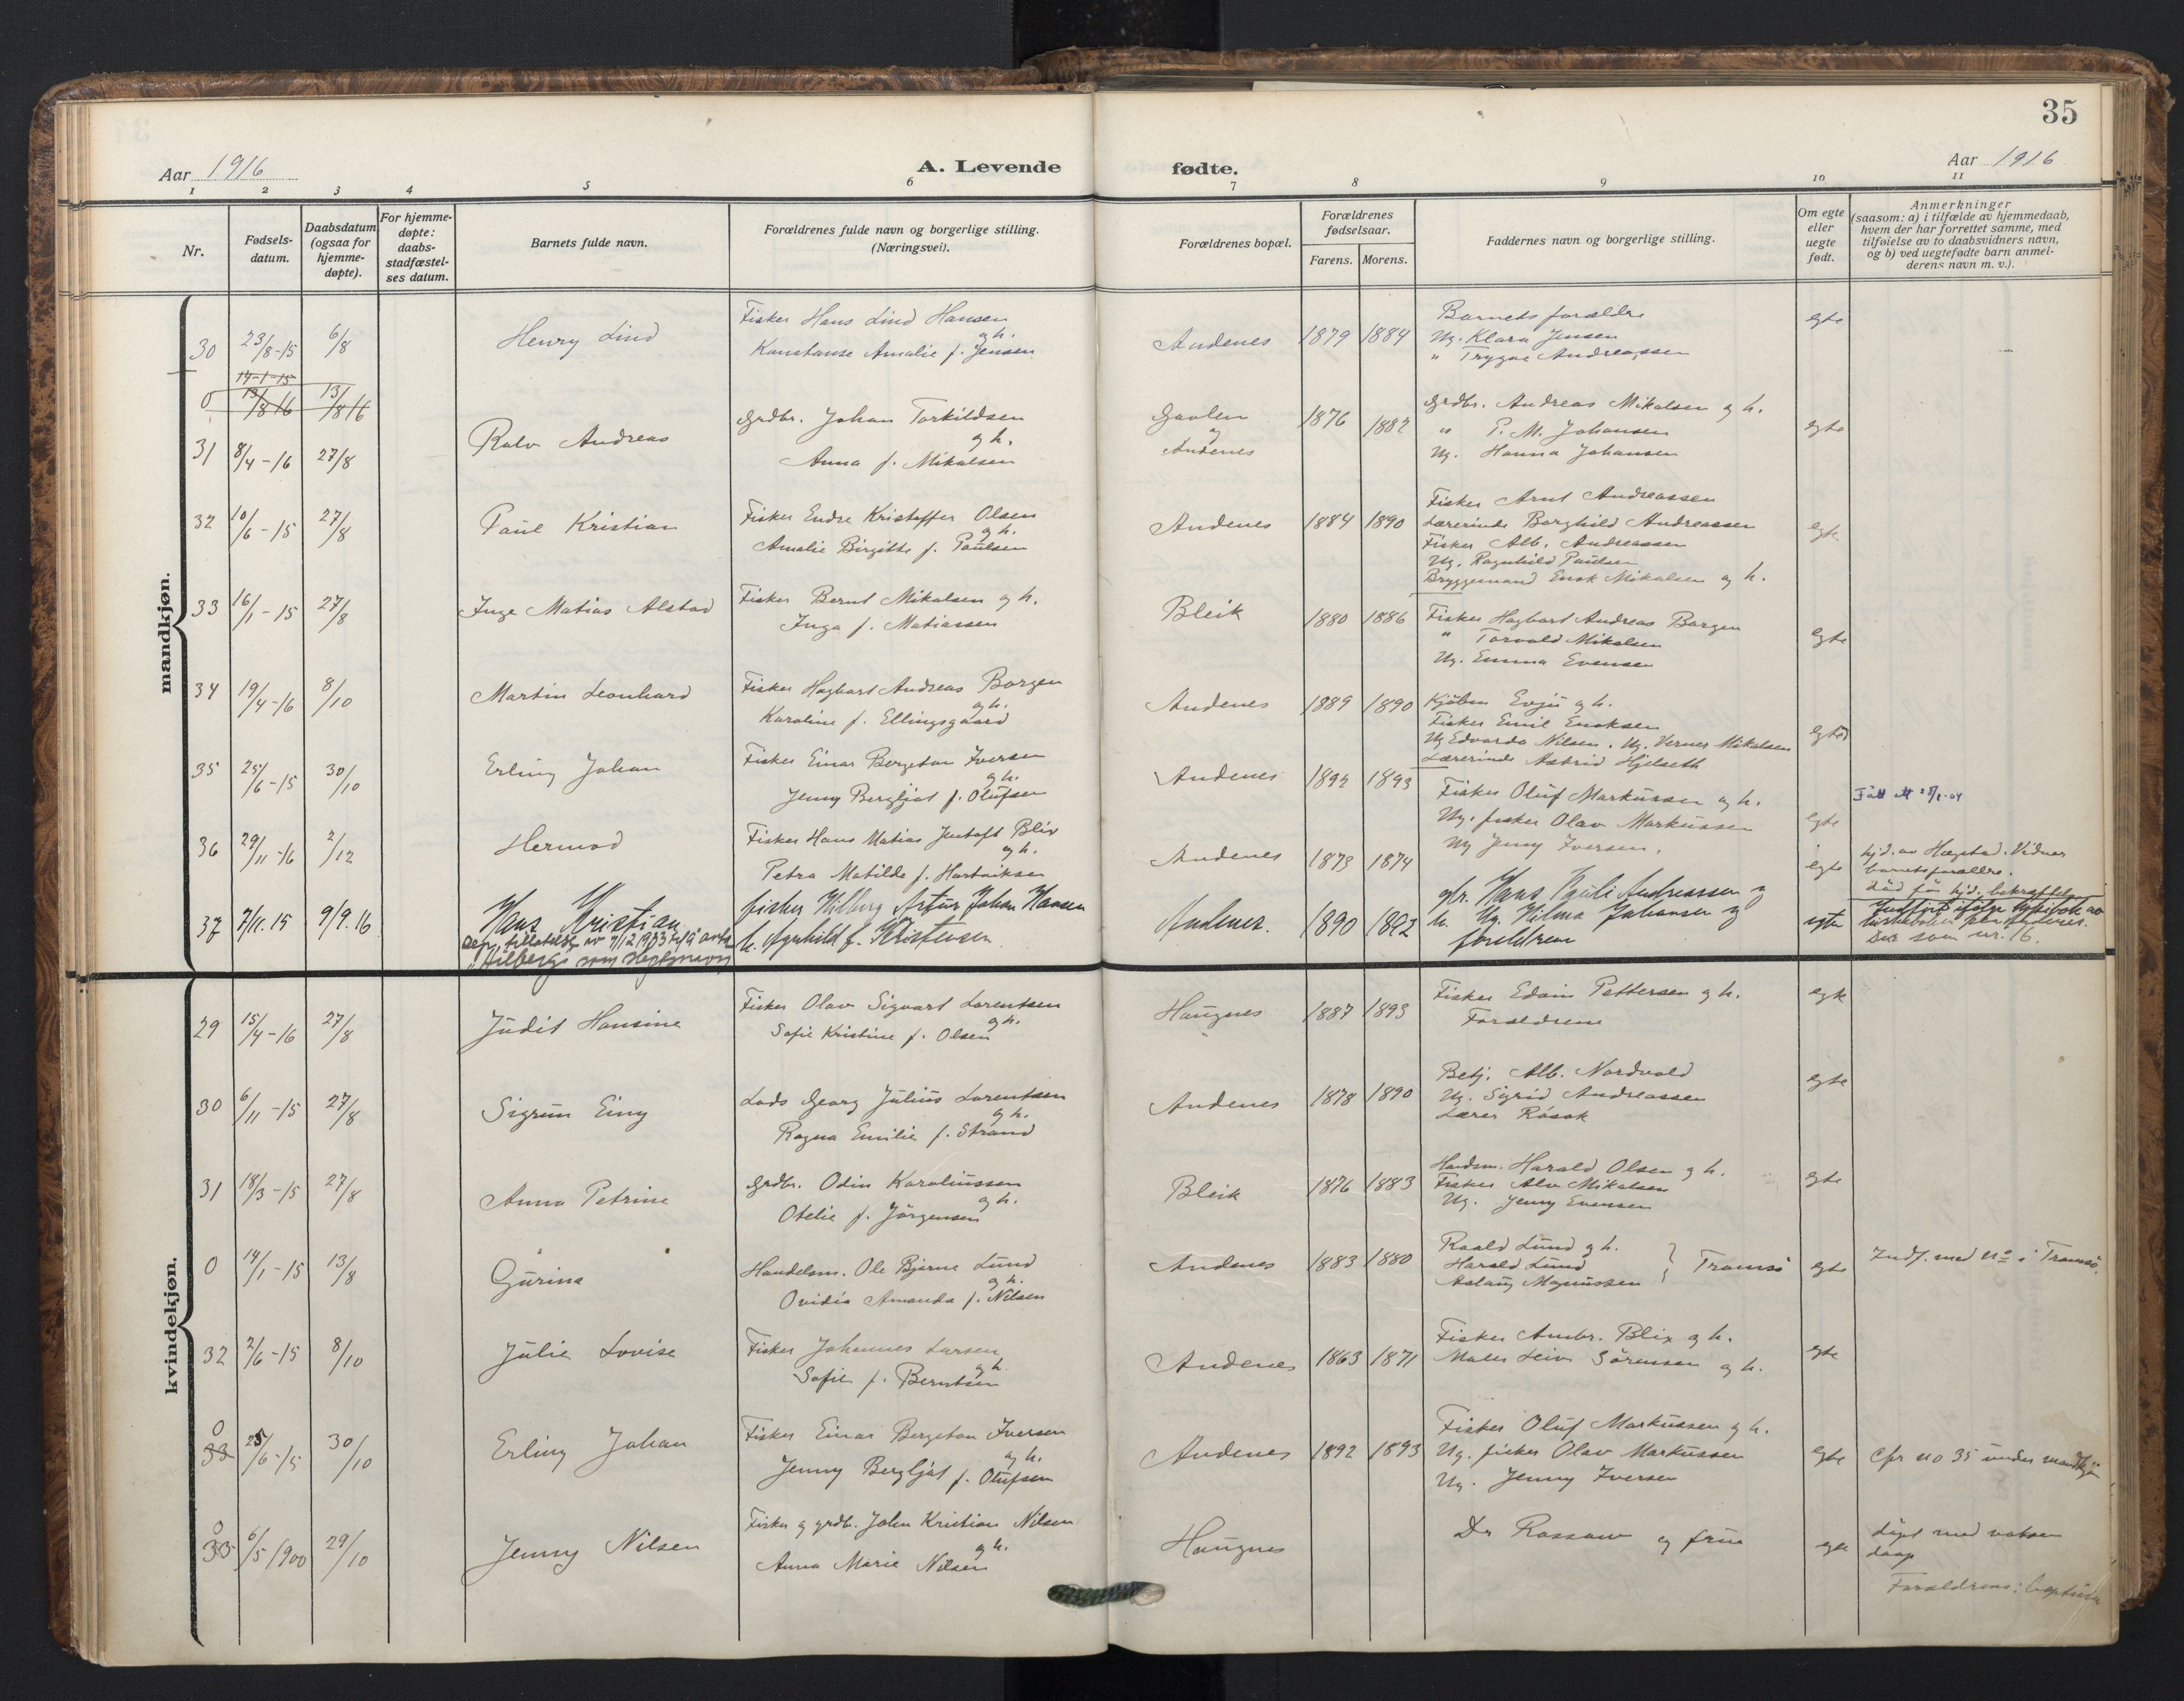 35
Aar 1916
A. Levende
fødte.
Aar 1916
1 2 3 4 5 6 7 8 9 10 11
Nr.
Fødsels-
datum.
Daabsdatum
(ogsaa for
hjemme-
døpte).
For hjemme-
døpte:
daabs-
stadfæstel-
ses datum.
Barnets fulde navn.
Forældrenes fulde navn og borgerlige stilling.
(Næringsvei).
Forældrenes bopæl.
Forældrenes
fødselsaar.
Farens. Morens.
Faddernes navn og borgerlige stilling.
Om egte
eller
uegte
født.
Anmerkninger
(saasom: a) i tilfælde av hjemmedaab,
hvem der har forrettet samme, med
tilføielse av to daabsvidners navn,
og b) ved uegtefødte barn anmel-
derens navn m. v.).
mandkjøn.
30 23/8-15 6/8 Henry Lind
Fisker Hans Lind Hansen
og h.
Konstanse Amalie f. Jensen
Andenes 1879 1884
Barnets forældre
Ug. Klara Jensen
" Trygve Andreassen
egte
14-1-15
0 13/8 16 13/8 16
31 8/4-16 27/8 Ralv Andreas
Grdbr. Johan Torkildsen
og h.
Anna f. Mikalsen
Gavlen
og
Andenes
1876 1882
Grdbr. Andreas Mikalsen og h.
" P. M. Johansen
Ug. Hanna Johansen
egte
32 10/6-15 27/8 Paul Kristian
Fisker Endre Kristoffer Olsen
og h.
Amalie Birgitte f. Paulsen
Andenes 1884 1890
Fisker Arnt Andreassen
Lærerinde Borghild Andreassen
Fisker Alb. Andreassen
Ug. Ragnhild Paulsen
Bryggemand Enok Mikalsen og h.
egte
33 16/1-15 27/8 Inge Matias Alstad
Fisker Bernt Mikalsen og h.
Inga f. Matiassen
Bleik 1880 1886
Fisker Hagbart Andreas Borgen
" Torvald Mikalsen
Ug. Emma Evensen
egte
34 19/4-16 8/10 Martin Leonhard
Fisker Hagbart Andreas Borgen
og h.
Karoline f. Ellingsgaard
Andenes 1889 1890
Kjøbm Evju og h.
Fisker Emil Enoksen
Ug Edvarda Nilsen. Ug. Verner Mikalsen
Lærerinde Astrid Hjelseth
egte
35 25/6-15 30/10 Erling Johan
Fisker Einar Bergeton Iversen
og h.
Jenny Bergljot f. Olufsen
Andenes 1892 1893
Fisker Oluf Markussen og h.
Ug. fisker Olav Markussen
Ug Jenny Iversen.
egte
36 29/11-16 2/12 Hermod
Fisker Hans Matias Jentoft Blix
og h.
Petra Matilde f. Hartviksen
Andenes 1873 1874
egte
hjd. av Hægstad. Vidner
barnets forældre.
Død før hjd. bekræftelse
37 7/11.15 9/9.16 Hans Kristian
fisker Hilberg Artur Johan Hansen
h. Agnhild f. Kristensen
Andenes. 1890 1892
gbr. Hans Pauli Andreassen og
h. Ug. Hilma Johansen og
foreldrene
egte
Død som nr. 16.
kvindekjøn.
29 15/4-16 27/8 Judit Hansine
Fisker Olav Sigvart Lorentsen
og h.
Sofie Kristine f. Olsen
Haugnes 1887 1893
Fisker Edvin Pettersen og h.
Forældrene
egte
30 6/11-15 27/8 Sigrun Einy
Lods Georg Julius Lorentsen
og h.
Ragna Emilie f. Strand
Andenes 1878 1890
Betj. Alb. Nordvold
Ug. Sigrid Andreassen
Lærer Røsok
egte
31 18/3-15 27/8 Anna Petrine
Grdbr. Odin Karoliussen
og h.
Otelie f. Jørgensen
Bleik 1876 1883
Handsm. Harald Olsen og h.
Fisker Alv Mikalsen
Ug. Jenny Evensen
egte
0 14/1-15 13/8 Gurine
Handelsm. Ole Bjarne Lund
og h.
Ovidia Amanda f. Nilsen
Andenes 1883 1880
Roald Lund og h.
Harald Lund
Aslaug Magnussen
Tromsø
egte
Indf. med no i Tromsø.
32 2/6-15 8/10 Julie Lovise
Fisker Johannes Larsen
og h.
Sofie f. Berntsen
Andenes 1863 1871
Fisker Ambr. Blix og h.
Maler Leiv Sørensen og h.
egte
0
33 25/6-15 30/10 Erling Johan
Fisker Einar Bergeton Iversen
og h.
Jenny Bergljot f. Olufsen
Andenes 1892 1893
Fisker Oluf Markussen og h.
Ug. fisker Olav Markussen
Ug. Jenny Iversen
egte
Cfr no 35 under mandkjøn
0
33 6/5 1900 29/10 Jenny Nilsen
Fisker og grdbr. John Kristian Nilsen
og h.
Anna Marie Nilsen
Haugnes
Dr Rossow og frue
egte
Døpt med voksen
daap